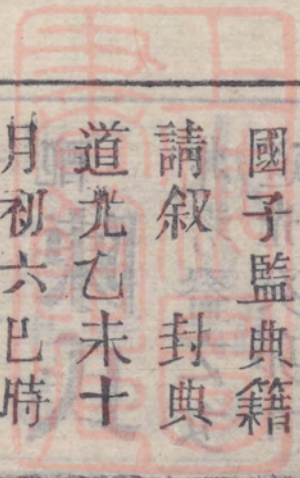 國子監典籍
請叙 封典
道光乙未十
月初六巳時